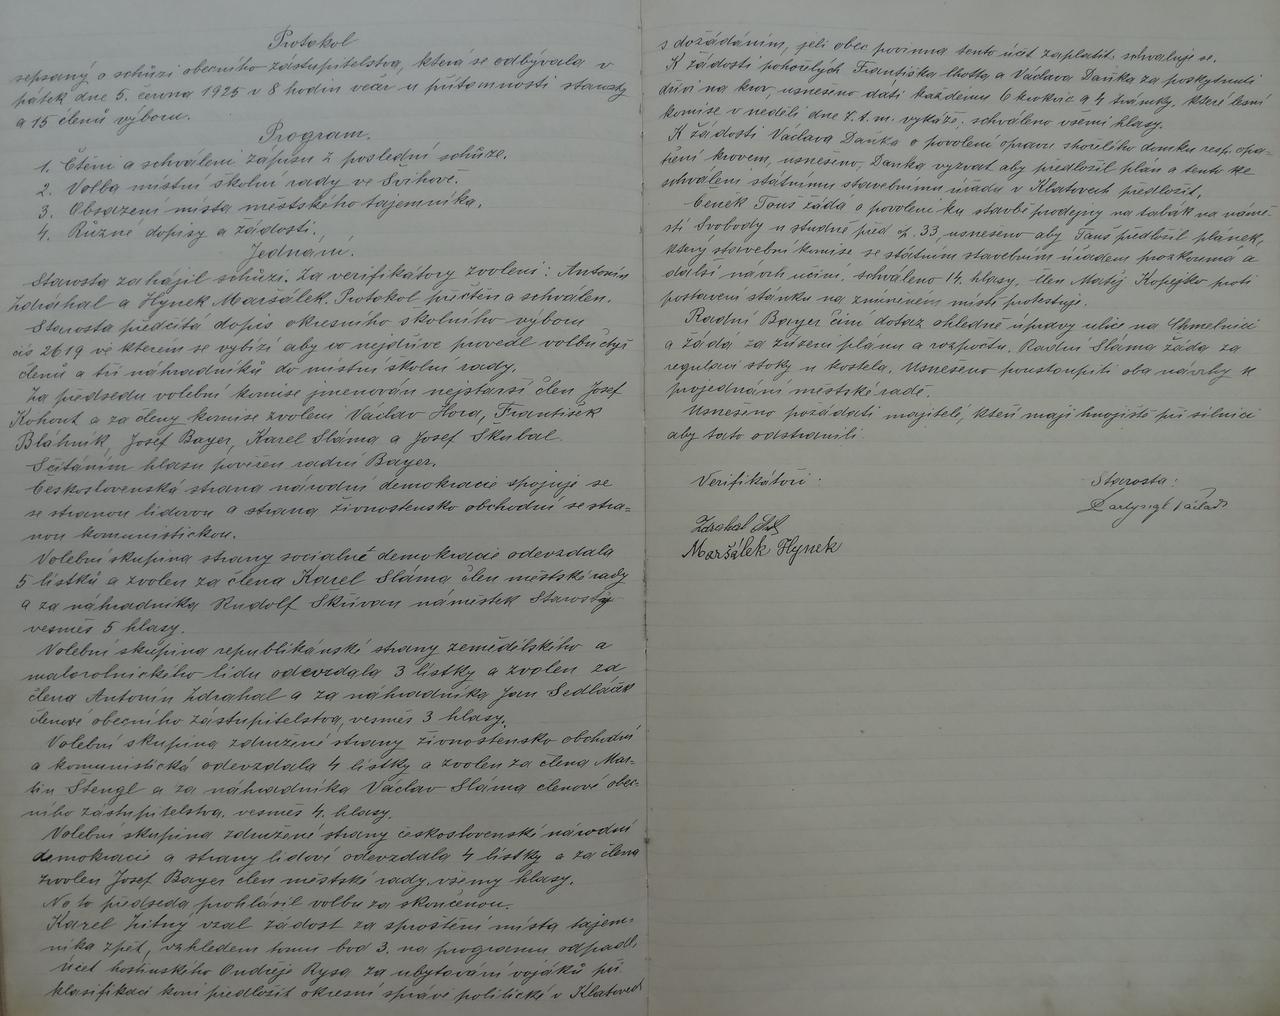 Protokol
sepsaný o schůzi obecního zástupitelstva, která se odbývala v
pátek dne 5. června 1925 v 8 hodin večer u přítomnosti starosty
a 15 členů výboru.
Program.
1. Čtění a schválení zápisu z poslední schůze.
2. Volba místní školní rady ve Švihově.
3. Obsazení místa městského tajemníka.
4. Různé dopisy a žádosti.
Jednání.
Starosta zahájil schůzi. Za verifikátory zvoleni: Antonín
Zdrahal a Hynek Maršálek. Protokol přečten a schválen.
Starosta předčítá dopis okresního školního výboru
čís 2619 ve kterém se vybízí aby co nejdříve provedl volbu čtyř
členů a tří náhradníků do místní školní rady.
Za předsedu volební komise jmenován nejstarší člen Josef
Kohout a za členy komise zvoleni Václav Hora, František
Blahník, Josef Bayer, Karel Sláma a Josef Škubal.
Sčítáním hlasu pověřen radní Bayer.
Československá strana národní demokracie spojuje se
se stranou lidovou a strana živnostensko obchodní se stra-
nou komunistickou.
Volební skupina strany sociálně demokracie odevzdala
5 lístků a zvolen za člena Karel Sláma člen městské rady
a za náhradníka Rudolf Skřivan náměstek Starosty
vesměs 5 hlasy.
Volební skupina republikánské strany zemědělského a
malorolnického lidu odevzdala 3 lístky a zvolen za
člena Antonín Zdrahal a za náhradníka Jan Sedláček
členové obecního zástupitelstva, vesměs 3 hlasy.
Volební skupina združené strany živnostensko obchodní
a komunistická odevzdala 4 lístky a zvolen za člena Mar-
tin Štengl a za náhradníka Václav Sláma členové obec-
ního zástupitelstva. vesměs 4. hlasy.
Volební skupina združené strany československé národní
demokracie a strany lidové odevzdala 4 lístky a za člena
zvolen Josef Bayer člen městské rady. všemy hlasy.
Na to předseda prohlásil volbu za skončenou.
Karel Žitný vzal žádost za sproštění místa tajem-
níka zpět, vzhledem tomu bod 3. na programu odpadl.
Účet hostinského Ondřeje Rysa za ubytování vojáků při
klasifikaci koní předložit okresní správě politické v Klatovech
s dožádáním, jeli obec povinna tento účet zaplatit. schvaluje se.
K žádosti pohořelých Františka Lhotka a Václava Daňka za poskytnutí
dříví na krov, usneseno dáti každému 6 krokvic a 4 trámky, které lesní
komise v neděli dne 7. t. m. vykáže; schváleno všemi hlasy.
K žádosti Václava Daňka o povolení opravu shořelého domku resp. opa-
tření krovem, usneseno, Daňka vyzvat aby předložil plán a tento ke
schválení státnímu stavebnímu úřadu v Klatovech předložit.
Čeněk Touš žádá o povolení ku stavbě prodejny na tabák na námě-
stí Svobody u studně před čp. 33, usneseno aby Touš předložil plánek,
který stavební komise, se státním stavebním úřadem prozkoumá a
další návrh učiní. schváleno 14. hlasy. člen Matěj Kopejsko proti
postavení stánku na zmíněném místě protestuje.
Radní Bayer činí dotaz ohledně úpravy ulice na Chmelnici
a žádá za zřízení plánu a rozpočtu. Radní Sláma žádá za
regulaci stoky u kostela. Usneseno postoupiti oba návrhy k
projednání městské radě.
Usnešeno požádati majitelé, kteří mají hnojiště při silnici
aby tato odstranili.
Verifikátoři:
Starosta:
Zdrahal Ant
Maršálek Hynek